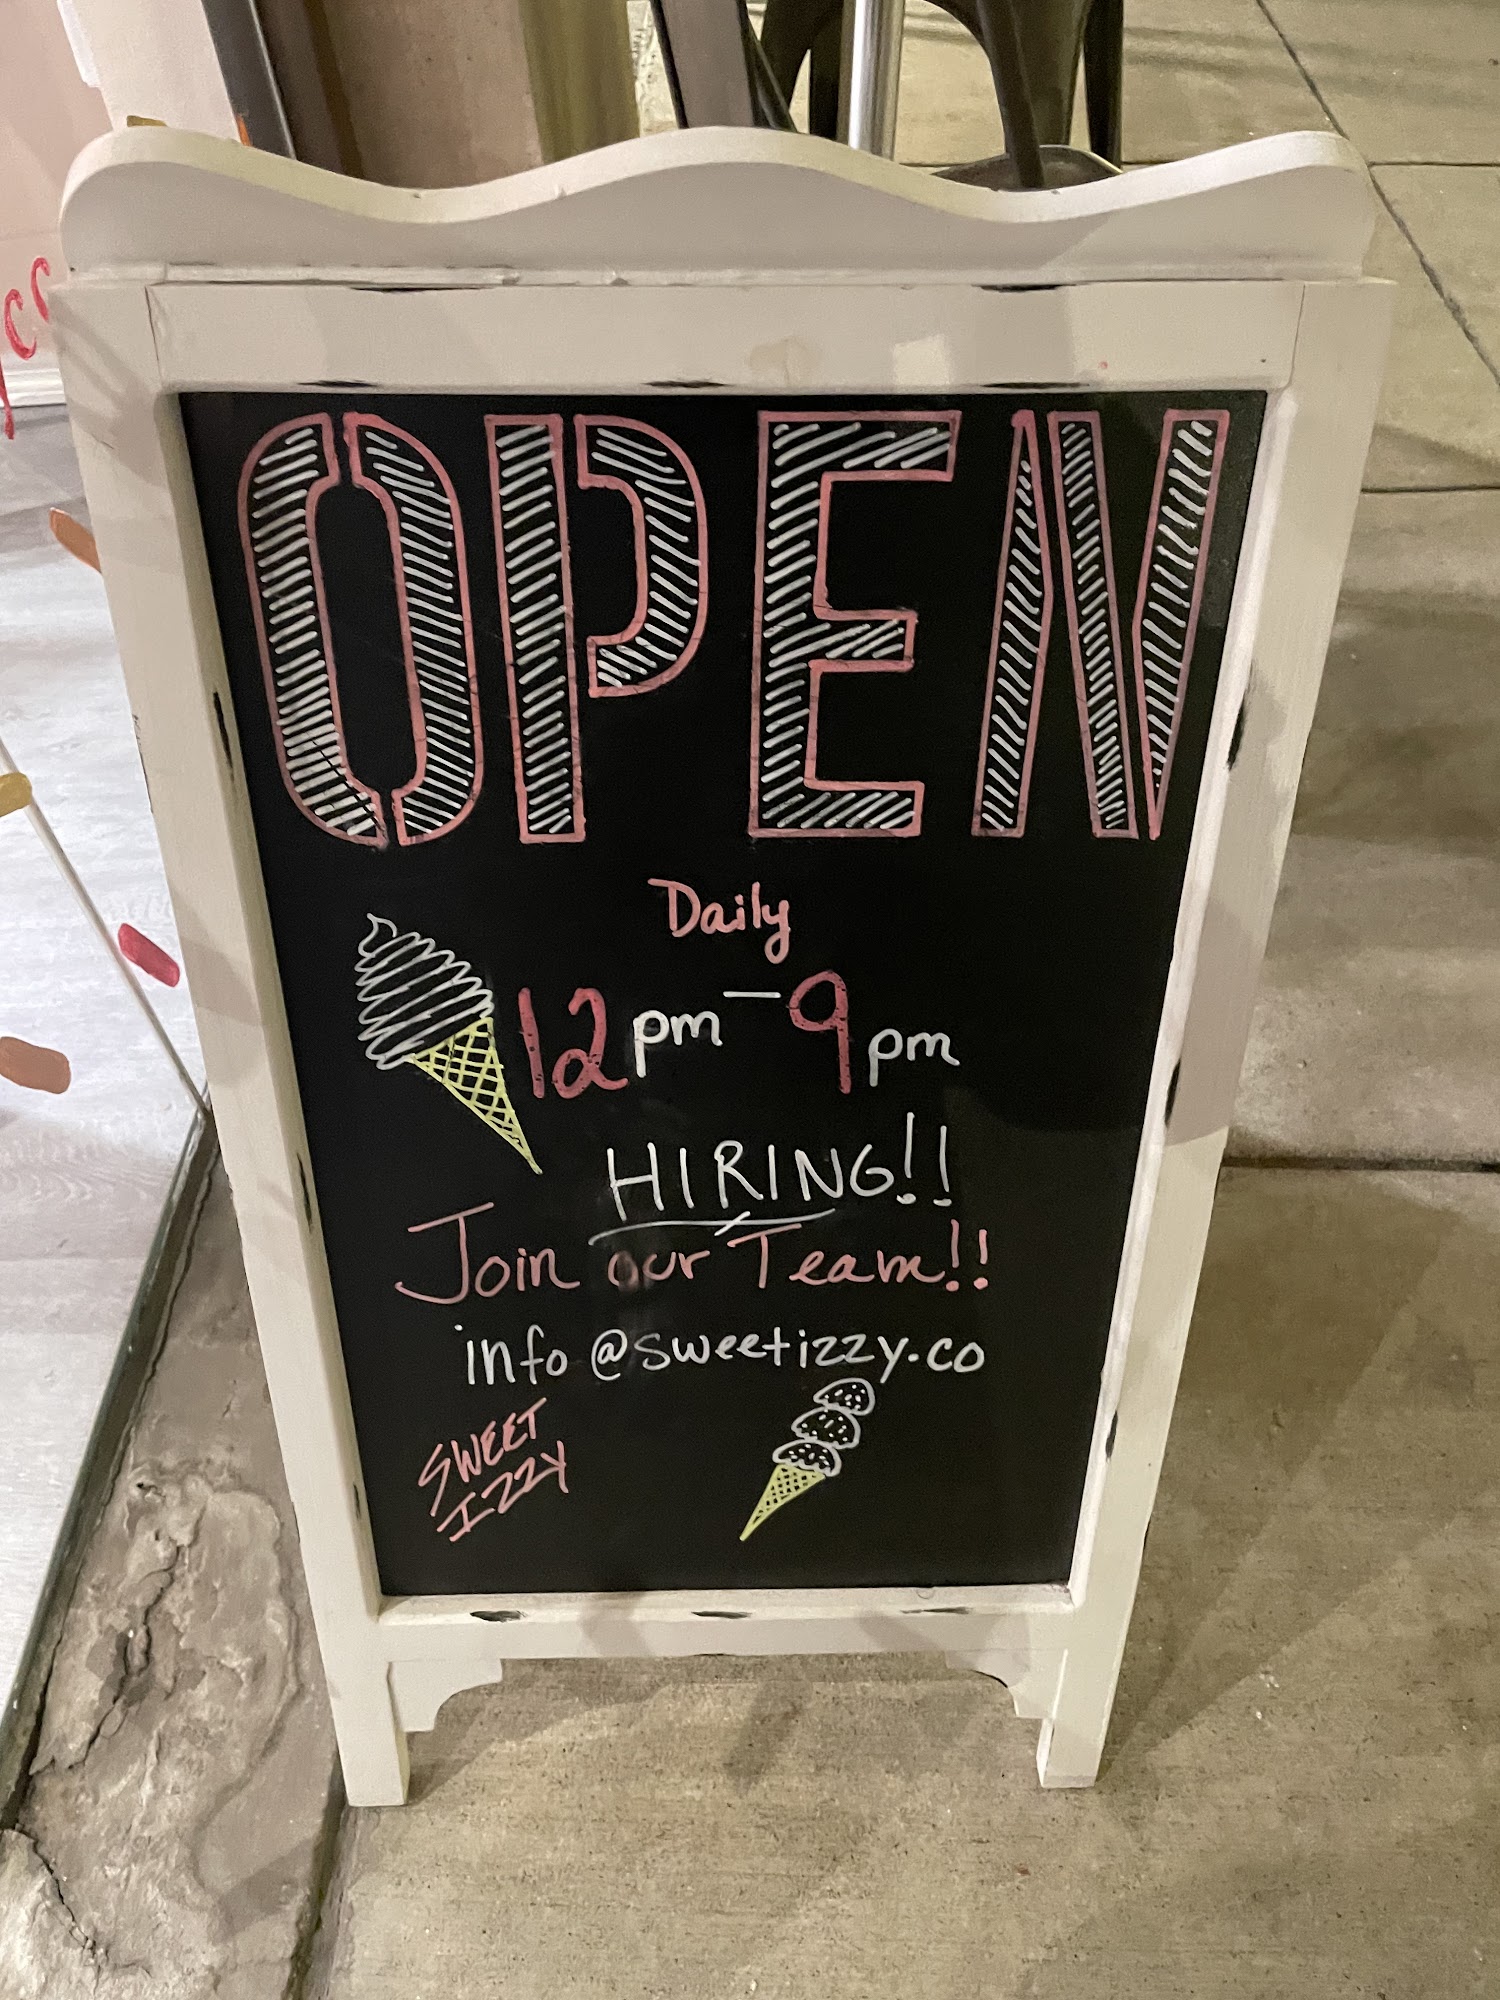 OPEN
Daily
12pm - 9pm
HIRING!!
Join our Team!!
info@sweetizzy.co
SWEET
IZZY